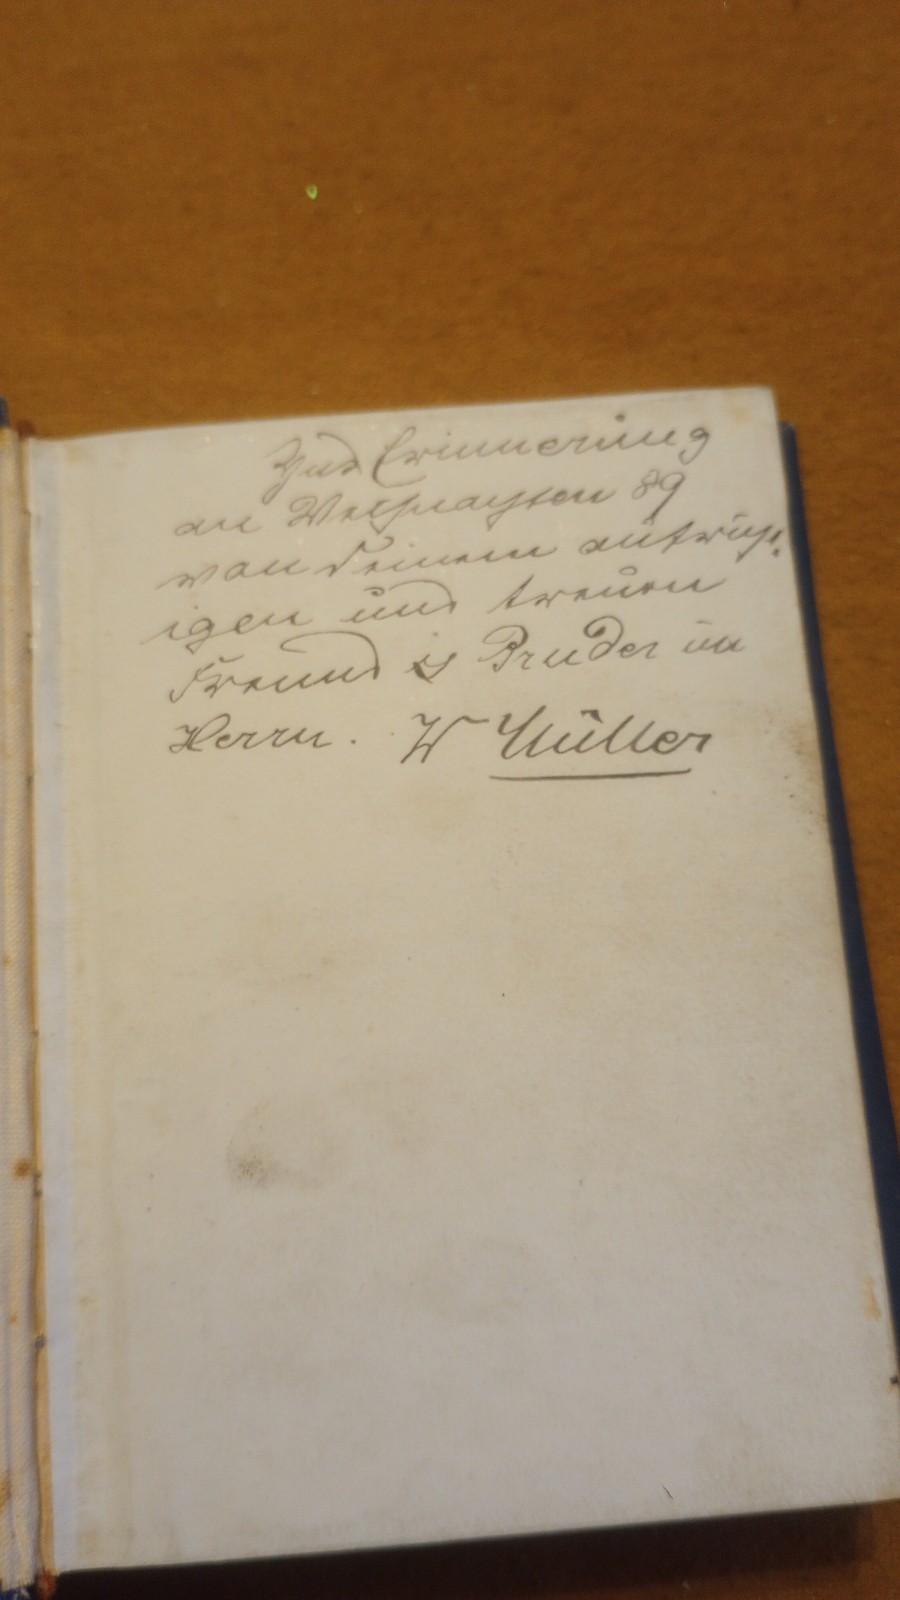 Zur Erinnerung
an Weihnachten 89
von Deinem aufricht
igen und treuen
Freund & Bruder im
Herrn. W Müller